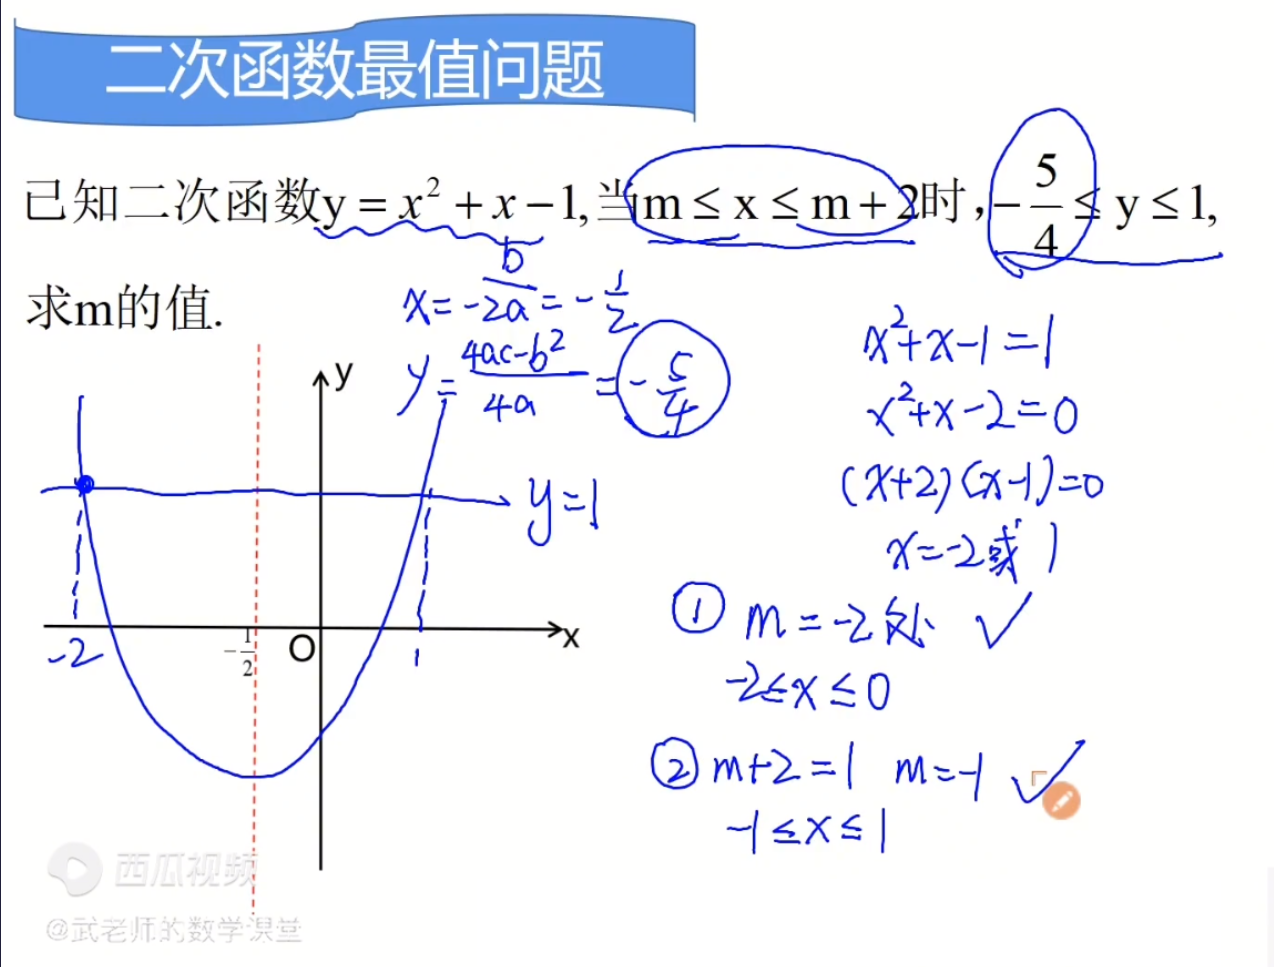 二次函数最值问题
已知二次函数y = x² + x − 1,当m ≤ x ≤ m + 2时, −5/4 ≤ y ≤ 1,
求m的值.
x = b/-2a = -1/2
y = 4ac-b²/4a = -5/4
x²+x-1=1
x²+x-2=0
(x+2)(x-1)=0
x=-2或1
① m=-2处 ✓
-2≤x≤0
② m+2=1 m=-1 ✓
-1≤x≤1
y
y=1
-2
-1/2
O
1
x
西瓜视频
@武老师的数学课堂